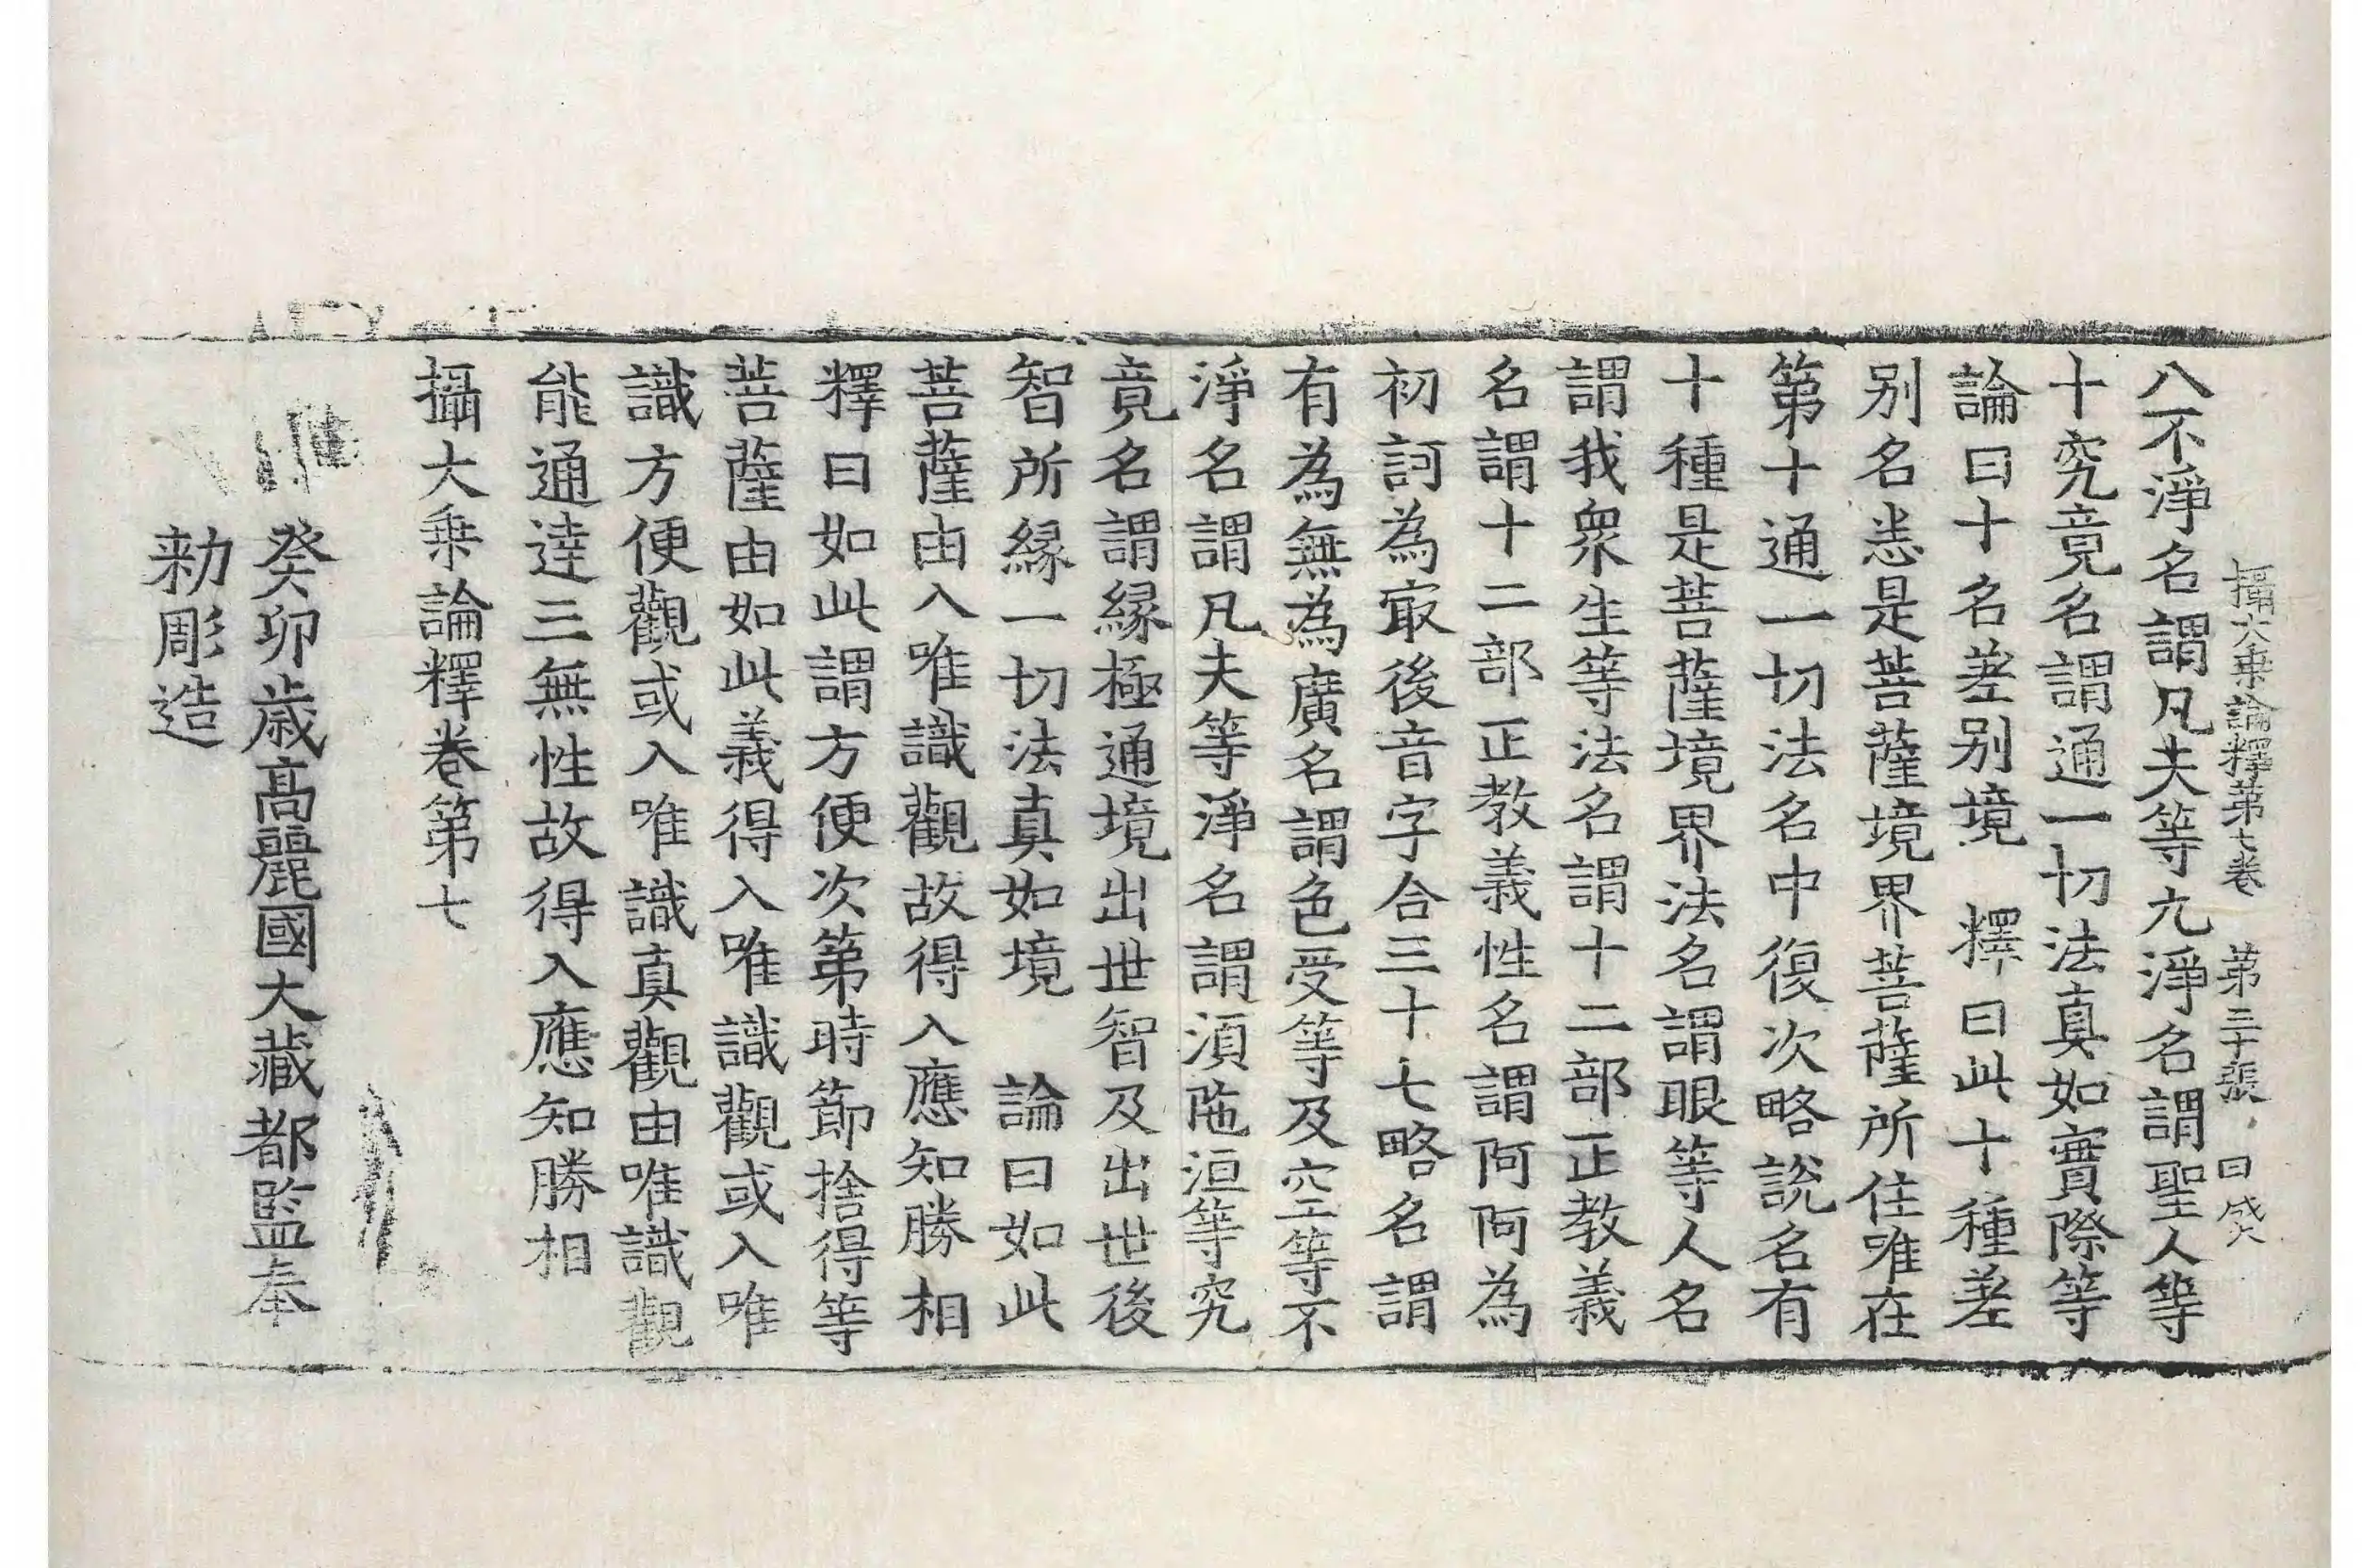 攝大乘論釋第七卷　第三十張
八不淨名謂凡夫等九淨名謂聖人等
十究竟名謂通一切法真如實際等
論曰十名差别境　釋曰此十種差
别名悉是菩薩境界菩薩所住唯在
第十通一切法名中復次略說名有
十種是菩薩境界法名謂眼等人名
謂我衆生等法名謂十二部正教義
名謂十二部正教義性名謂阿阿為
初訶為㝡後音字合三十七略名謂
有為無為廣名謂色受等及空等不
淨名謂凡夫等淨名謂湏陁洹等究
竟名謂縁極通境出世智及出世後
智所縁一切法真如境　論曰如此
菩薩由入唯識觀故得入應知勝相
釋曰如此謂方便次第時節捨得等
菩薩由如此義得入唯識觀或入唯
識方便觀或入唯識真觀由唯識觀
能通達三無性故得入應知勝相
攝大乘論釋卷第七
癸卯歲髙麗國大藏都監奉
勑彫造